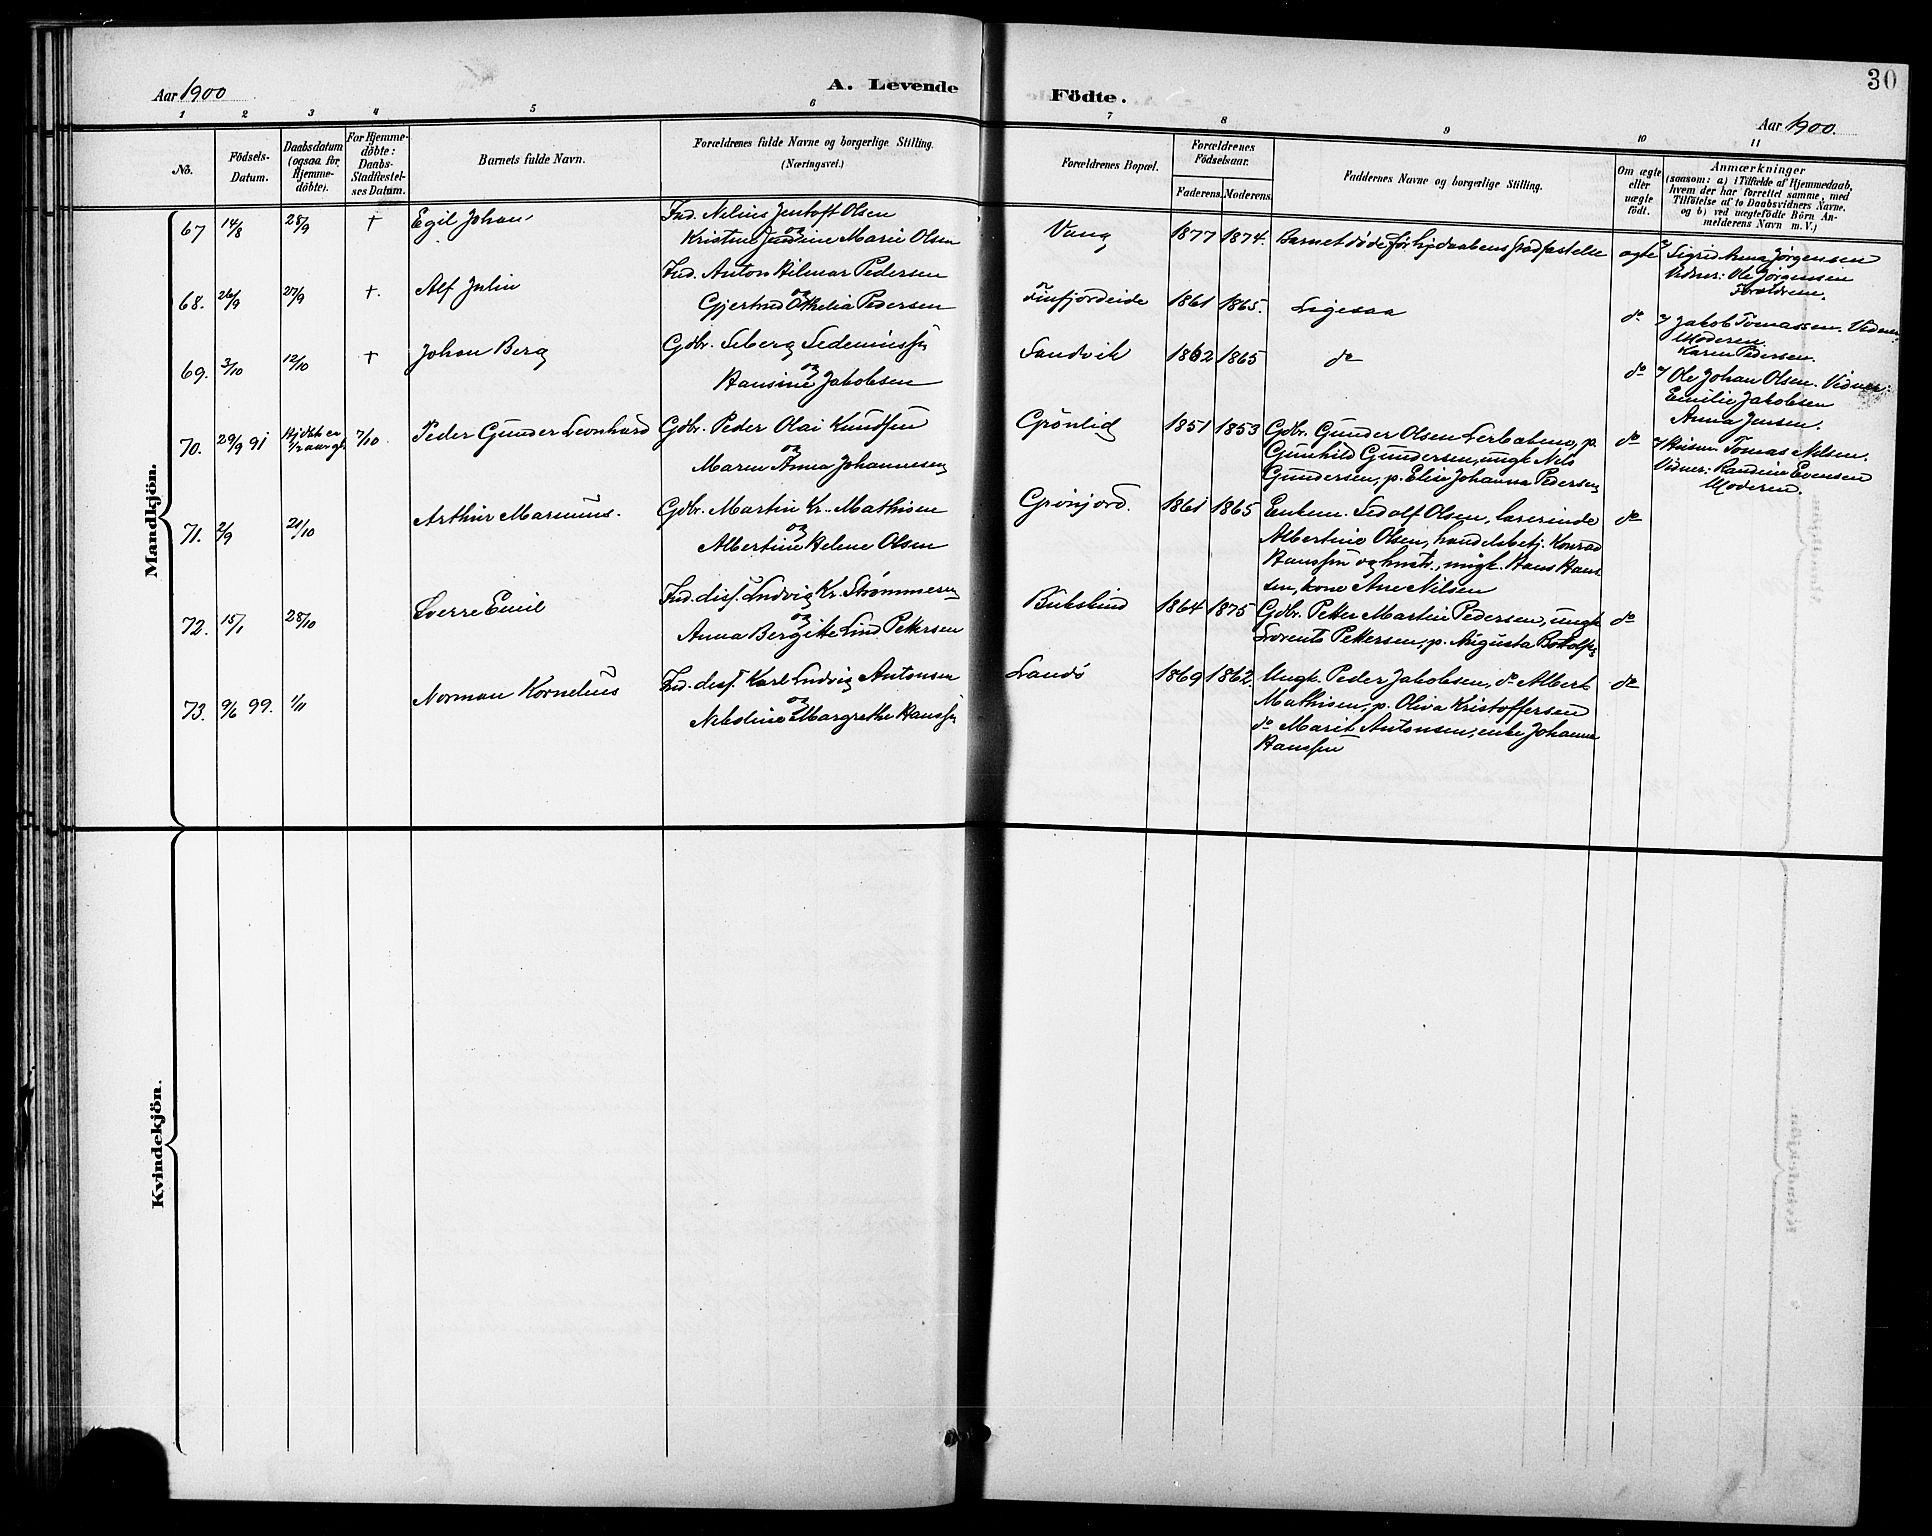 30
Aar 1900
A. Levende
Födte.
Aar 1900.
1 2 3 4 5 6 7 8 9 10 11
No.
Födsels-
Datum.
Daabsdatum
(ogsaa for
Hjemme-
döbte).
For Hjemme-
döbte:
Daabs-
Stadfæstel-
ses Datum.
Barnets fulde Navn.
Forældrenes fulde Navne og borgerlige Stilling.
(Næringsvei.)
Forældrenes Bopæl.
Forældrenes
Födselsaar.
Faderens. Moderens.
Faddernes Navne og borgerlige Stilling.
Om ægte
eller
uægte
födt.
Anmærkninger
(saasom: a) i Tilfælde af Hjemmedaab,
hvem der har forrettet samme, med
Tilföielse af to Daabsvidners Navne,
og b) ved uægtefödte Börn An-
melderens Navn m. V.)
Mandkjön.
67 14/8 28/9 † Egil Johan
Ind. Nelius Jentoft Olsen
og
Kristine Marie Olsen
Vang 1877 1874. Barnet døde før hjdaabens stadfæstelse ægte
Sigrid Anna Jørgensen
Vidner: Ole Jørgensen
Forældrene.
68. 26/9 27/9 †. Alf Julin
Ind. Anton Hilmar Pedersen
og
Gjertrud Othelia Pedersen
Finfjordeide 1861 1865. Ligesaa do
Jakob Tomassen. Vidner:
Moderen.
Karen Pedersen.
69. 3/10 12/10 † Johan Berg
Gdbr. Seberg
og
Hansine Jakobsen
Sandvik 1862 1865 do do
Ole Johan Olsen. Vidner:
Emilie Jakobsen
Anna Jensen.
70. 29/9 91 7/10. Peder Gunder Leonhard
Gdbr. Peder Olai Knudsen
og
Maren Anna Johannesen
Grønlid 1851 1853
Gdbr. Gunder Olsen p.
Gunhild Gundersen, ungk. Nils
Gundersen, p. Elise Johanna Pedersen
do
Tomas Nilsen.
Vidner: Randine Evensen
Moderen.
71. 2/9 21/10 Arthur Marinius.
Gdbr. Martin Kr. Mathisen
og
Albertine Helene Olsen
Grønjord. 1861 1865
Enkem. Sedolf Olsen, lærerinde
Albertine Olsen, handelsbetj. Konrad
Hanssen og hustr., ungk. Hans Hans-
sen, kone Ane Nilsen
do
72. 15/1 28/10 Sverre Emil
Ind. diss. Ludvig Kr. Strømmesen
og
Anna Bergitte Lind Pettersen
Bukskind 1864 1875
Gdbr. Petter Martin Pedersen, ungk.
Lorents Pettersen, p. Augusta
do
73. 9/6 99. 1/11 Norman Kornelius
Ind. diss. Karl Ludvig Antonsen
og
Nikoline Margrethe Hanssen
Sandø 1869 1862.
Ungk. Peder Jakobsen, do Albert
Mathisen, p. Oliva Kristoffersen
do Marit Antonsen, enke Johanna
Hanssen
do
Kvindekjön.